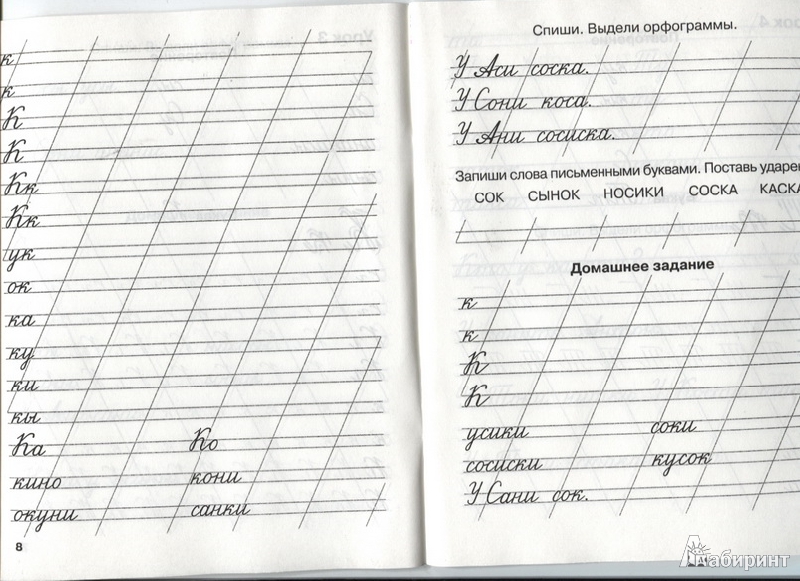 к
к
К
К
Кк
Кк
ук
ок
ка
ку
ки
кы
Ка Ко
кино кони
окуни санки
8
Спиши. Выдели орфограммы.
У Аси соска.
У Сони коса.
У Ани сосиска.
Запиши слова письменными буквами. Поставь ударен
СОК СЫНОК НОСИКИ СОСКА КАСКА
Домашнее задание
к
к
К
К
усики соки
сосиски кусок
У Сани сок.
Лабиринт